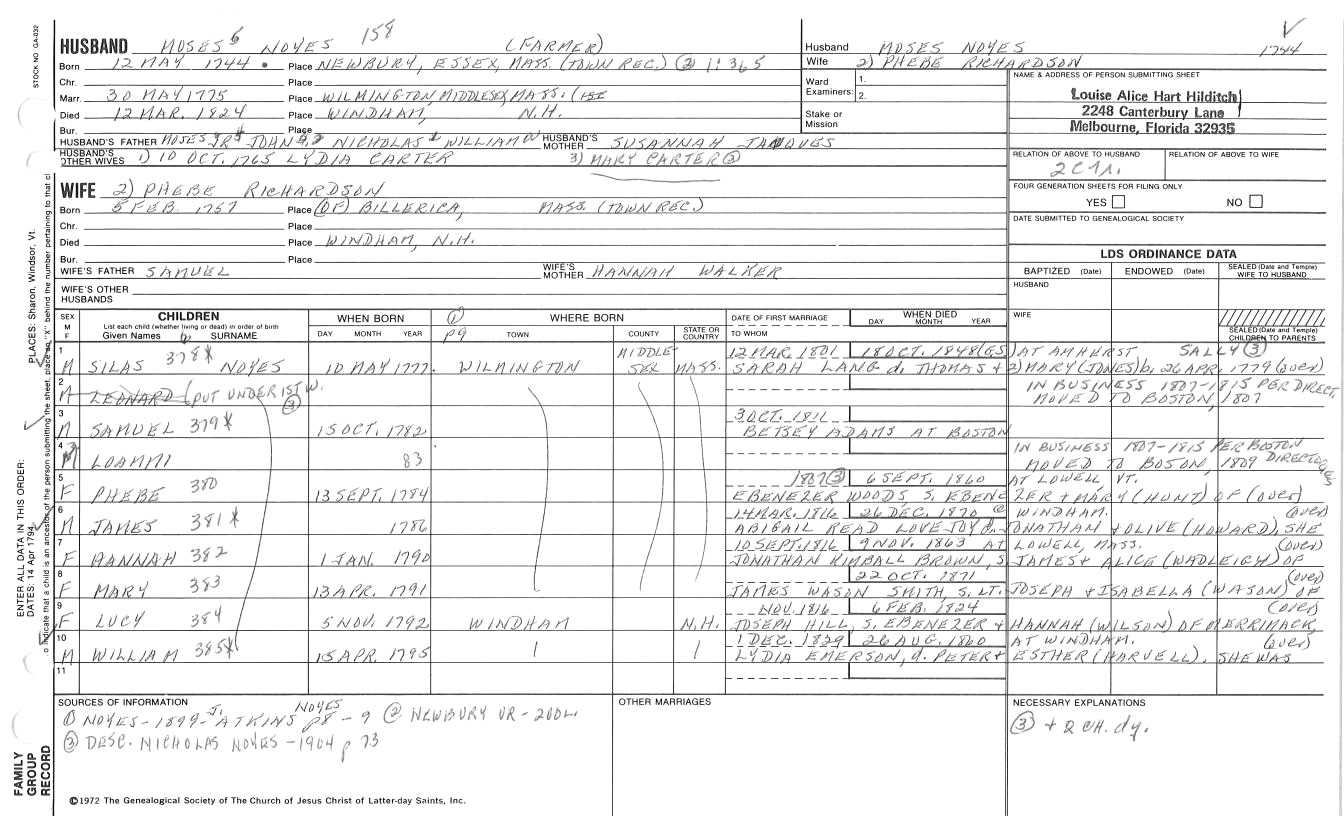 STOCK NO. GA-032
HUSBAND MOSES 6 NOYES 158 (FARMER)
Born 12 MAY 1744 Place NEWBURY, ESSEX, MASS. (TOWN REC.) ② 1:365
Chr. Place
Marr. 30 MAY 1775 Place WILMINGTON, MIDDLESEX, MASS.
Died 12 MAR. 1824 Place WINDHAM, N.H.
Bur. Place
HUSBAND'S FATHER MOSES JR JOHN NICHOLAS WILLIAM HUSBAND'S MOTHER SUSANNAH
HUSBAND'S OTHER WIVES 1) 10 OCT. 1765 LYDIA CARTER 3) MARY CARTER ②
Husband MOSES NOYES 1744
Wife 2) PHEBE RICHARDSON
Ward Examiners: 1. 2.
Stake or Mission
NAME & ADDRESS OF PERSON SUBMITTING SHEET
Louise Alice Hart Hilditch
2248 Canterbury Lane
Melbourne, Florida 32935
RELATION OF ABOVE TO HUSBAND RELATION OF ABOVE TO WIFE
FOUR GENERATION SHEETS FOR FILING ONLY
YES NO
DATE SUBMITTED TO GENEALOGICAL SOCIETY
WIFE 2) PHEBE RICHARDSON
Born 5 FEB 1757 Place (OF) BILLERICA, MASS. (TOWN REC.)
Chr. Place
Died Place WINDHAM, N.H.
Bur. Place
WIFE'S FATHER SAMUEL WIFE'S MOTHER HANNAH WALKER
WIFE'S OTHER HUSBANDS
LDS ORDINANCE DATA
BAPTIZED (Date) ENDOWED (Date) SEALED (Date and Temple) WIFE TO HUSBAND
HUSBAND
WIFE
SEALED (Date and Temple) CHILDREN TO PARENTS
SEX M F
CHILDREN
List each child (whether living or dead) in order of birth
Given Names SURNAME
WHEN BORN DAY MONTH YEAR
① p9 WHERE BORN TOWN COUNTY STATE OR COUNTRY
DATE OF FIRST MARRIAGE TO WHOM
WHEN DIED DAY MONTH YEAR
1 M SILAS 378X NOYES 10 MAY 1777 WILMINGTON MIDDLESEX MASS. 12 MAR. 1801 18 OCT. 1848 (GS) AT AMHERST SALLY ③
SARAH LANG d. THOMAS + 2) MARY (JONES) b. 26 APR. 1779 (over)
2 M LEONARD (PUT UNDER 1ST W. ③ IN BUSINESS 1807-1815 PER DIRECT.
MOVED TO BOSTON, 1807
3 M SAMUEL 379X 15 OCT. 1782 3 OCT. 1811
BETSEY ADAMS AT BOSTON
4 M LOAMMI 83 IN BUSINESS 1807-1815 PER BOSTON DIRECTORIES
MOVED TO BOSON, 1809
5 F PHEBE 380 13 SEPT. 1784 1807 ③ 6 SEPT. 1860 AT LOWELL, VT.
EBENEZER WOODS, S. EBENEZER + MARY (HUNT) OF (over)
6 M JAMES 381X 1786 14 MAR. 1816 26 DEC. 1870 @ WINDHAM. (over)
ABIGAIL READ LOVEJOY d. JONATHAN + OLIVE (HOWARD), SHE
7 F HANNAH 382 1 JAN. 1790 10 SEPT. 1816 9 NOV. 1863 AT LOWELL, MASS. (over)
JONATHAN KIMBALL BROWN, S JAMES + ALICE (WADLEIGH) OF
8 F MARY 383 13 APR. 1791 22 OCT. 1871 (over)
JAMES WASON SMITH, S. LT. JOSEPH + ISABELLA (WASON) OF
9 F LUCY 384 5 NOV. 1792 WINDHAM N.H. NOV. 1816 6 FEB. 1824 (over)
JOSEPH HILL, S. EBENEZER + HANNAH (WILSON) OF MERRIMACK,
10 M WILLIAM 385X 15 APR. 1795 1 DEC. 1829 26 AUG. 1860 AT WINDHAM. (over)
LYDIA EMERSON, d. PETER + ESTHER (HARVELL). SHE WAS
11
SOURCES OF INFORMATION
① NOYES-1899-J. ATKINS NOYES p8-9 ② NEWBURY VR-200L.
③ DESC. NICHOLAS NOYES-1904 p 73
OTHER MARRIAGES
NECESSARY EXPLANATIONS
③ + 2 CH. dy.
©1972 The Genealogical Society of The Church of Jesus Christ of Latter-day Saints, Inc.
PLACES: Sharon, Windsor, Vt.
ENTER ALL DATA IN THIS ORDER:
DATES: 14 Apr 1794
o indicate that a child is an ancestor of the person submitting the sheet, place an "X" behind the number pertaining to that cl
FAMILY GROUP RECORD